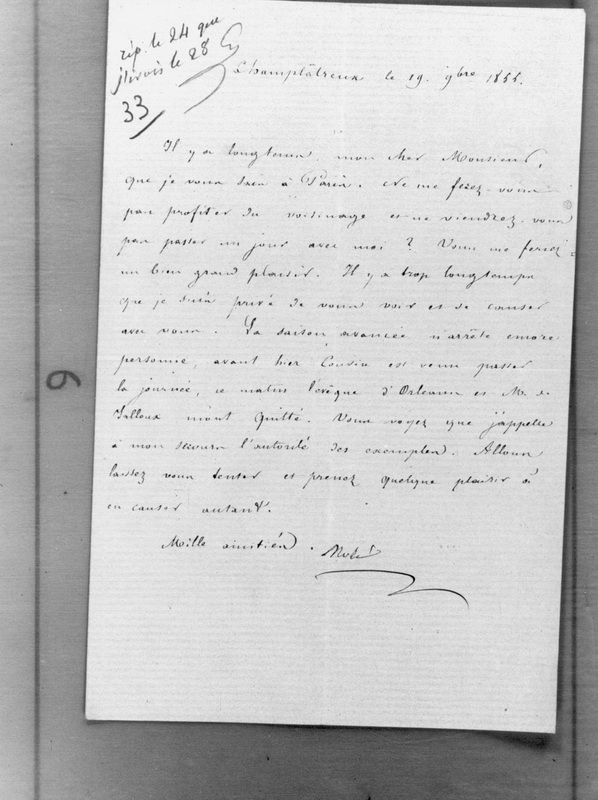 rép. le 24 que
j'irais le 28
33
Champlâtreux le 19. 9bre 1855.
Il y a longtemps, mon cher Monsieur,
que je vous sais à Paris. Ne me ferez-vous
pas profiter du voisinage et ne viendrez-vous
pas passer un jour avec moi ? Vous me feriez
un bien grand plaisir. Il y a trop longtemps
que je suis privé de vous voir et de causer
avec vous. La saison avancée n'arrête encore
personne, avant hier Cousin est venu passer
la journée, ce matin l'évêque d'Orléans et M. de
Falloux m'ont quitté. Vous voyez que j'appelle
à mon secours l'autorité des exemples. Allons
laissez vous tenter et prenez quelque plaisir à
en causer autant.
Mille amitiés. Molé
6